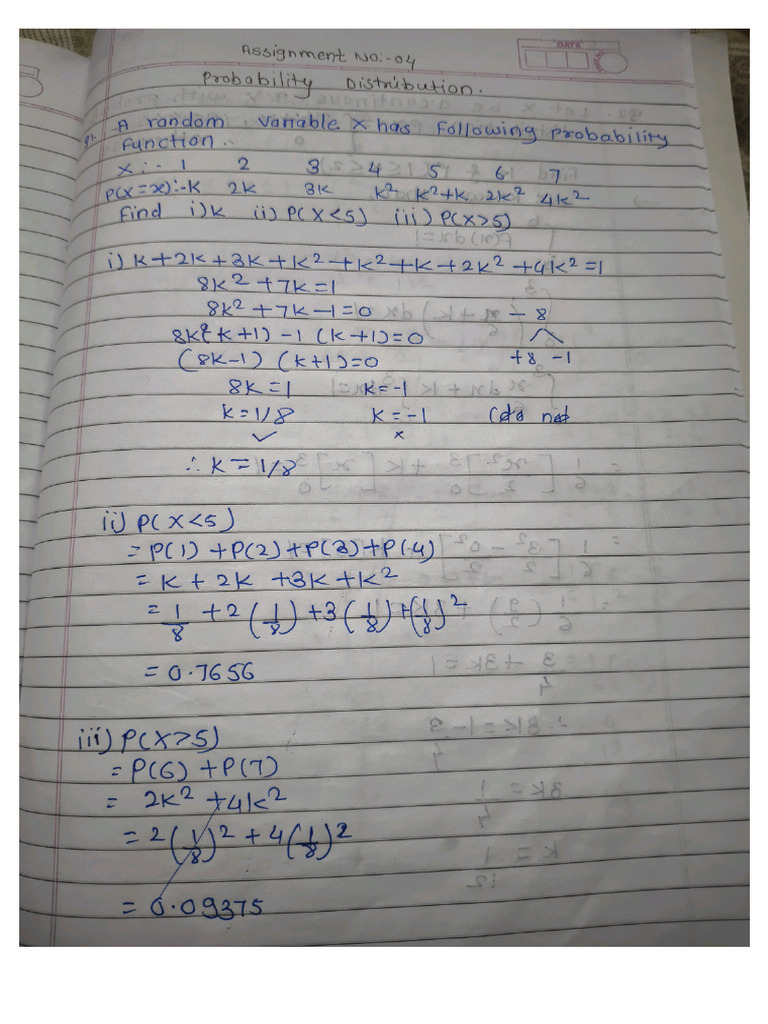 Assignment No:-04
DATE
Probability Distribution.
Q1. A random variable x has following probability
function..
x:- 1 2 3 4 5 6 7
P(X=x):-K 2K 3K K² K²+K 2K² 4K²
Find i)K (ii) P(X<5) (iii) P(X>5)
i) K+2K+3K+K²+K²+K+2K²+4K²=1
8K²+7K=1
8K²+7K-1=0 - 8
8K(K+1)-1(K+1)=0
(8K-1) (K+1)=0 +8 -1
8K=1 K=-1
K=1/8 K=-1 (do not
✓ x
∴ K=1/8
ii) P(X<5)
= P(1) +P(2)+P(3)+P(4)
= K + 2K +3K+K²
= 1/8 +2(1/8)+3(1/8)+(1/8)²
= 0.7656
iii) P(X>5)
= P(6) +P(7)
= 2K² +4K²
= 2(1/8)² + 4(1/8)²
= 0.09375